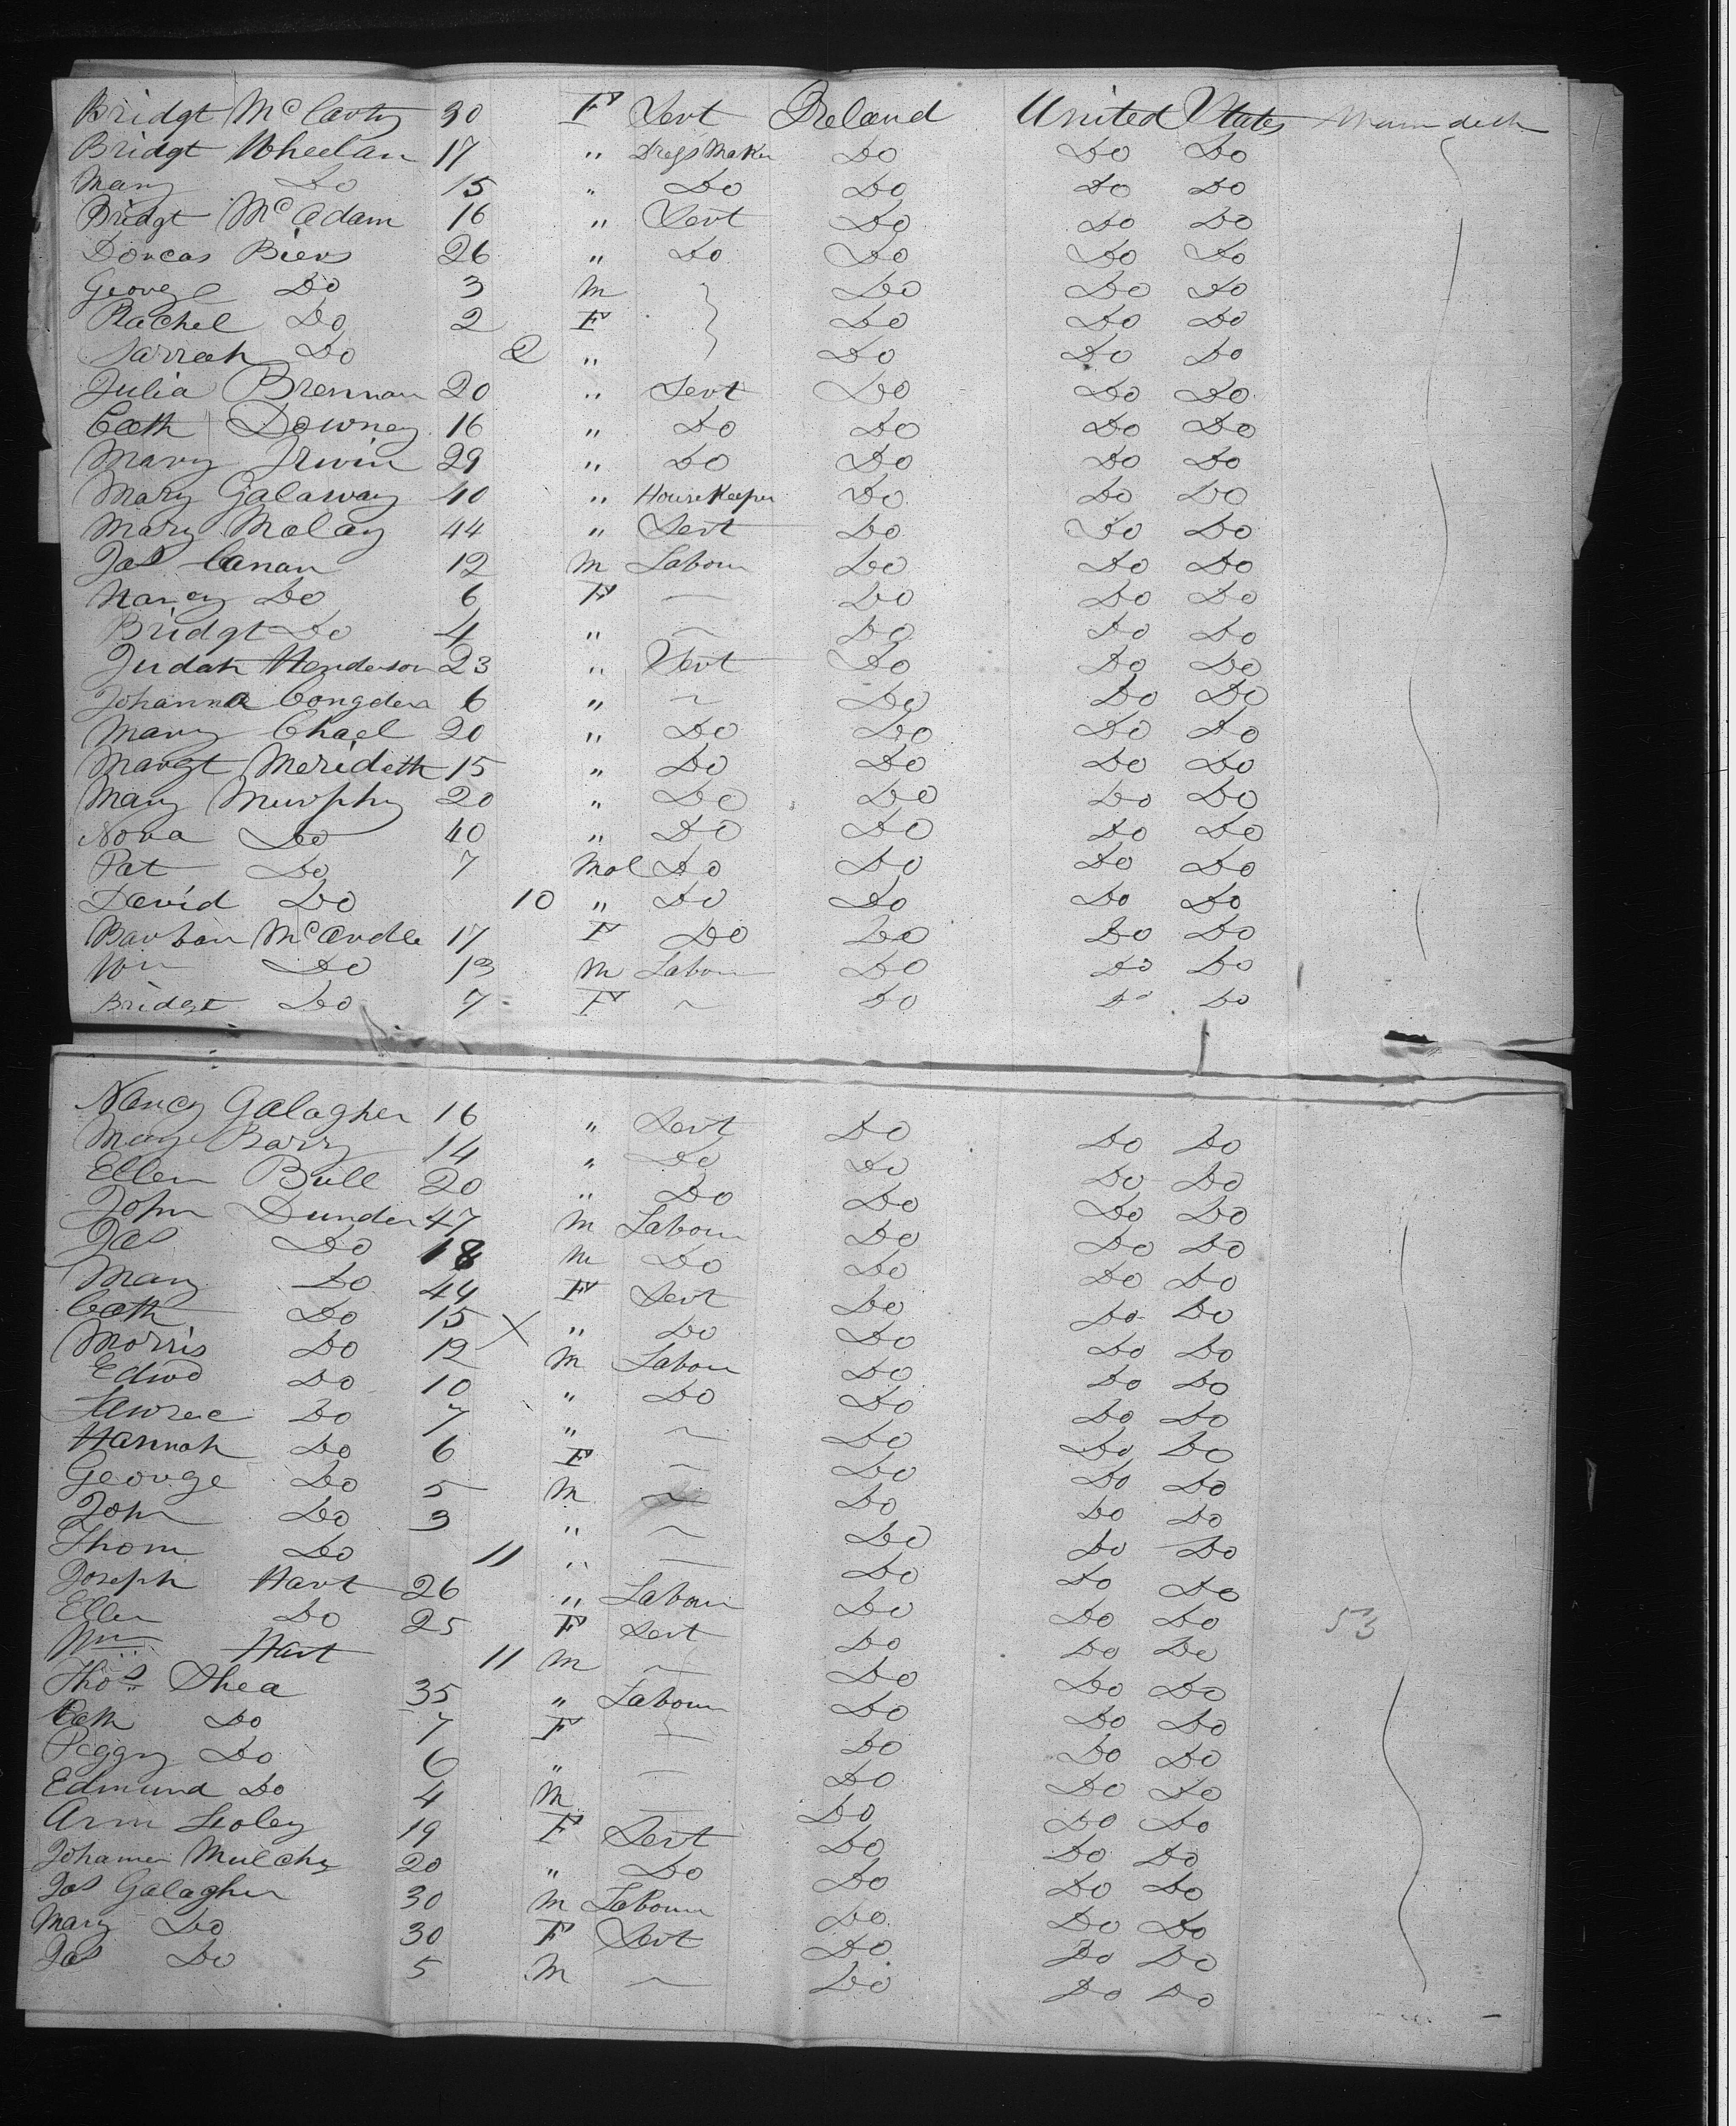 Bridgt McCarty 30 F Servt Ireland United States Main deck
Bridgt Wheelan 17 " Dress Maker Do Do Do
Mary Do 15 " Do Do Do Do
Bridgt McAdam 16 " Servt Do Do Do
Dorcas Biers 26 " Do Do Do Do
George Do 3 M Do Do Do
Rachel Do 2 F Do Do Do
Sarreah Do 2 " Do Do Do
Julia Brennan 20 " Servt Do Do Do
Cath Downey 16 " Do Do Do Do
Mary Irwin 29 " Do Do Do Do
Mary Galaway 40 " HouseKeeper Do Do Do
Mary Molay 44 " Servt Do Do Do
Jas Canan 12 M Labour Do Do Do
Nancy Do 6 F — Do Do Do
Bridgt Do 4 " — Do Do Do
Judah Henderson 23 " Servt Do Do Do
Johanna 6 " ~ Do Do Do
Mary Chael 20 " Do Do Do Do
Margt Merideth 15 " Do Do Do Do
Mary Murphy 20 " Do Do Do Do
Nora Do 40 " Do Do Do Do
Pat Do 7 Mal Do Do Do Do
David Do 10 " Do Do Do Do
McArdle 17 F Do Do Do Do
Wm Do 13 M Labour Do Do Do
Bridgt Do 7 F ~ Do Do Do
Nancy Galagher 16 " Servt Do Do Do
Mary Barry 14 " Do Do Do Do
Ellen Bull 20 " Do Do Do Do
John Dunden 47 M Labour Do Do Do
Jas Do 18 M Do Do Do Do
Mary Do 44 F Servt Do Do Do
Cath Do 15 X " Do Do Do Do
Morris Do 12 M Labour Do Do Do
Edwd Do 10 " Do Do Do Do
Do 7 " ~ Do Do Do
Hannah Do 6 F ~ Do Do Do
George Do 5 M ~ Do Do Do
John Do 3 " ~ Do Do Do
Thom Do 11 " — Do Do Do
Joseph Hart 26 " Labour Do Do Do
Ellen Do 25 F Servt Do Do Do 53
Wm Hart 11 M ~ Do Do Do
Thos Shea 35 " Labour Do Do Do
Cath Do 7 F — Do Do Do
Peggy Do 6 " — Do Do Do
Edmund Do 4 M — Do Do Do
Ann Foley 19 F Servt Do Do Do
Mulchy 20 " Do Do Do Do
Jas Galagher 30 M Labour Do Do Do
Mary Do 30 F Servt Do Do Do
Jas Do 5 M ~ Do Do Do